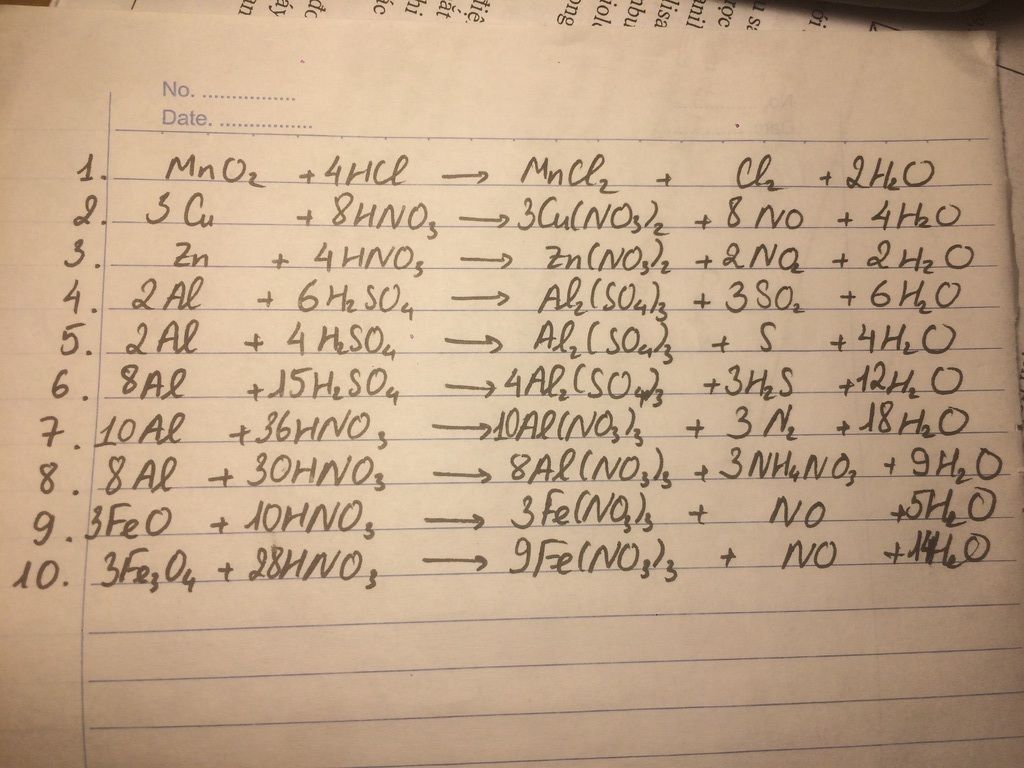 No. ................
Date. ................
1. MnO₂ + 4HCl → MnCl₂ + Cl₂ + 2H₂O
2. 3Cu + 8HNO₃ → 3Cu(NO₃)₂ + 8NO + 4H₂O
3. Zn + 4HNO₃ → Zn(NO₃)₂ + 2NO₂ + 2H₂O
4. 2Al + 6H₂SO₄ → Al₂(SO₄)₃ + 3SO₂ + 6H₂O
5. 2Al + 4H₂SO₄ → Al₂(SO₄)₃ + S + 4H₂O
6. 8Al + 15H₂SO₄ → 4Al₂(SO₄)₃ + 3H₂S + 12H₂O
7. 10Al + 36HNO₃ → 10Al(NO₃)₃ + 3N₂ + 18H₂O
8. 8Al + 30HNO₃ → 8Al(NO₃)₃ + 3NH₄NO₃ + 9H₂O
9. 3FeO + 10HNO₃ → 3Fe(NO₃)₃ + NO + 5H₂O
10. 3Fe₃O₄ + 28HNO₃ → 9Fe(NO₃)₃ + NO + 14H₂O